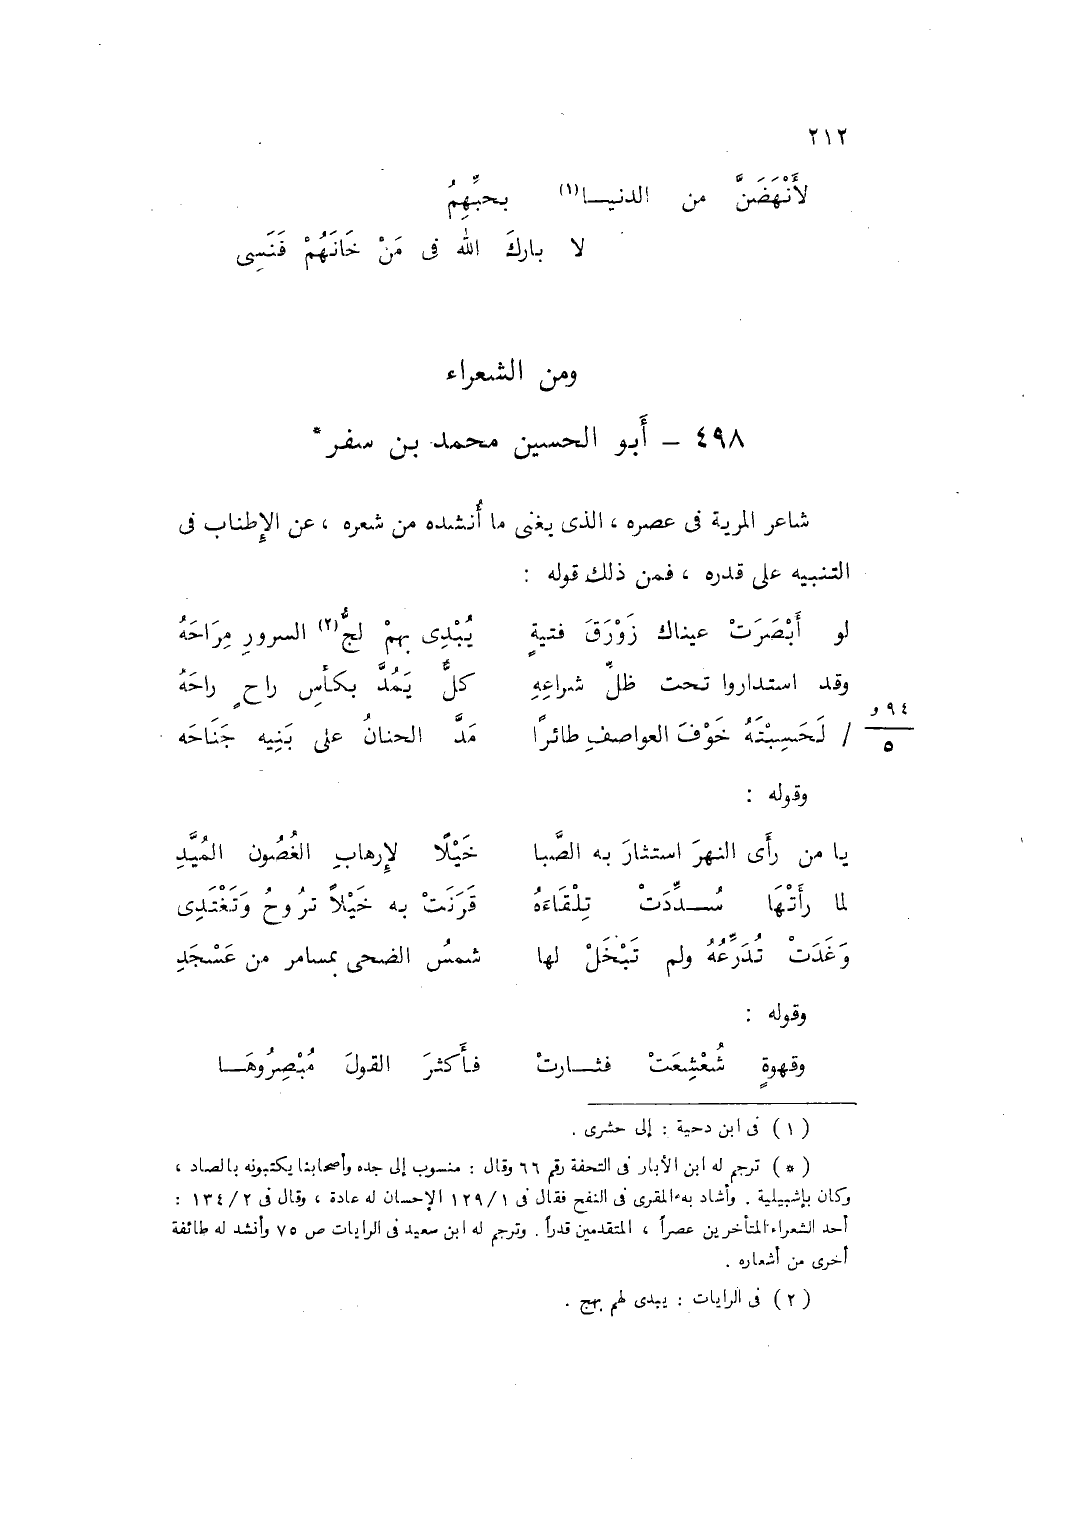 ٢١٢
لأَنْهَضَنَّ من الدنيـــا(١) بحبِّهِمُ
لا باركَ الله فى مَنْ خَانَهُمْ فَنَسِى
ومن الشعراء
٤٩٨ – أَبو الحسين محمد بن سفر*
شاعر المرية فى عصره ، الذى يغنى ما أُنشده من شعره ، عن الإِطناب فى
التنبيه على قدره ، فمن ذلك قوله :
لو أَبْصَرَتْ عيناك زَوْرَقَ فتيةٍ يُبْدِى بهمْ لجُّ(٢) السرورِ مِرَاحَهُ
وقد استداروا تحت ظلِّ شراعِهِ كلٌّ يَمُدَّ بكأْسِ راحٍ راحَهُ
٩٤ و
٥
/ لَحَسِبْتَهُ خَوْفَ العواصفِ طائرًا مَدَّ الحنانُ على بَنِيه جَنَاحَه
وقوله :
يا من رأَى النهرَ استثارَ به الصَّبا خَيْلًا لإِرهابِ الغُصُون المُيَّدِ
لما رأَتْهَا سُـــدِّدَتْ تِلْقَاءَهُ قَرَنَتْ به خَيْلاً تروُحُ وَتَغْتَدِى
وَغَدَتْ تُدَرِّعُهُ ولم تَبْخَلْ لها شمسُ الضحى بمسامر من عَسْجَدِ
وقوله :
وقهوةٍ شُعْشِعَتْ فثـــارتْ فـأَكثرَ القولَ مُبْصِرُوهَـــا
(١) فى ابن دحية : إلى حشرى .
(*) ترجم له ابن الأبار فى التحفة رقم ٦٦ وقال : منسوب إلى جده وأصحابنا يكتبونه بالصاد ،
وكان بإشبيلية . وأشاد به المقرى فى النفح فقال فى ١٢٩/١ الإحسان له عادة ، وقال فى ١٣٤/٢ :
أحد الشعراء المتأخرين عصراً ، المتقدمين قدراً . وترجم له ابن سعيد فى الرايات ص ٧٥ وأنشد له طائفة
أخرى من أشعاره .
(٢) فى الرايات : يبدى لهم بهج .